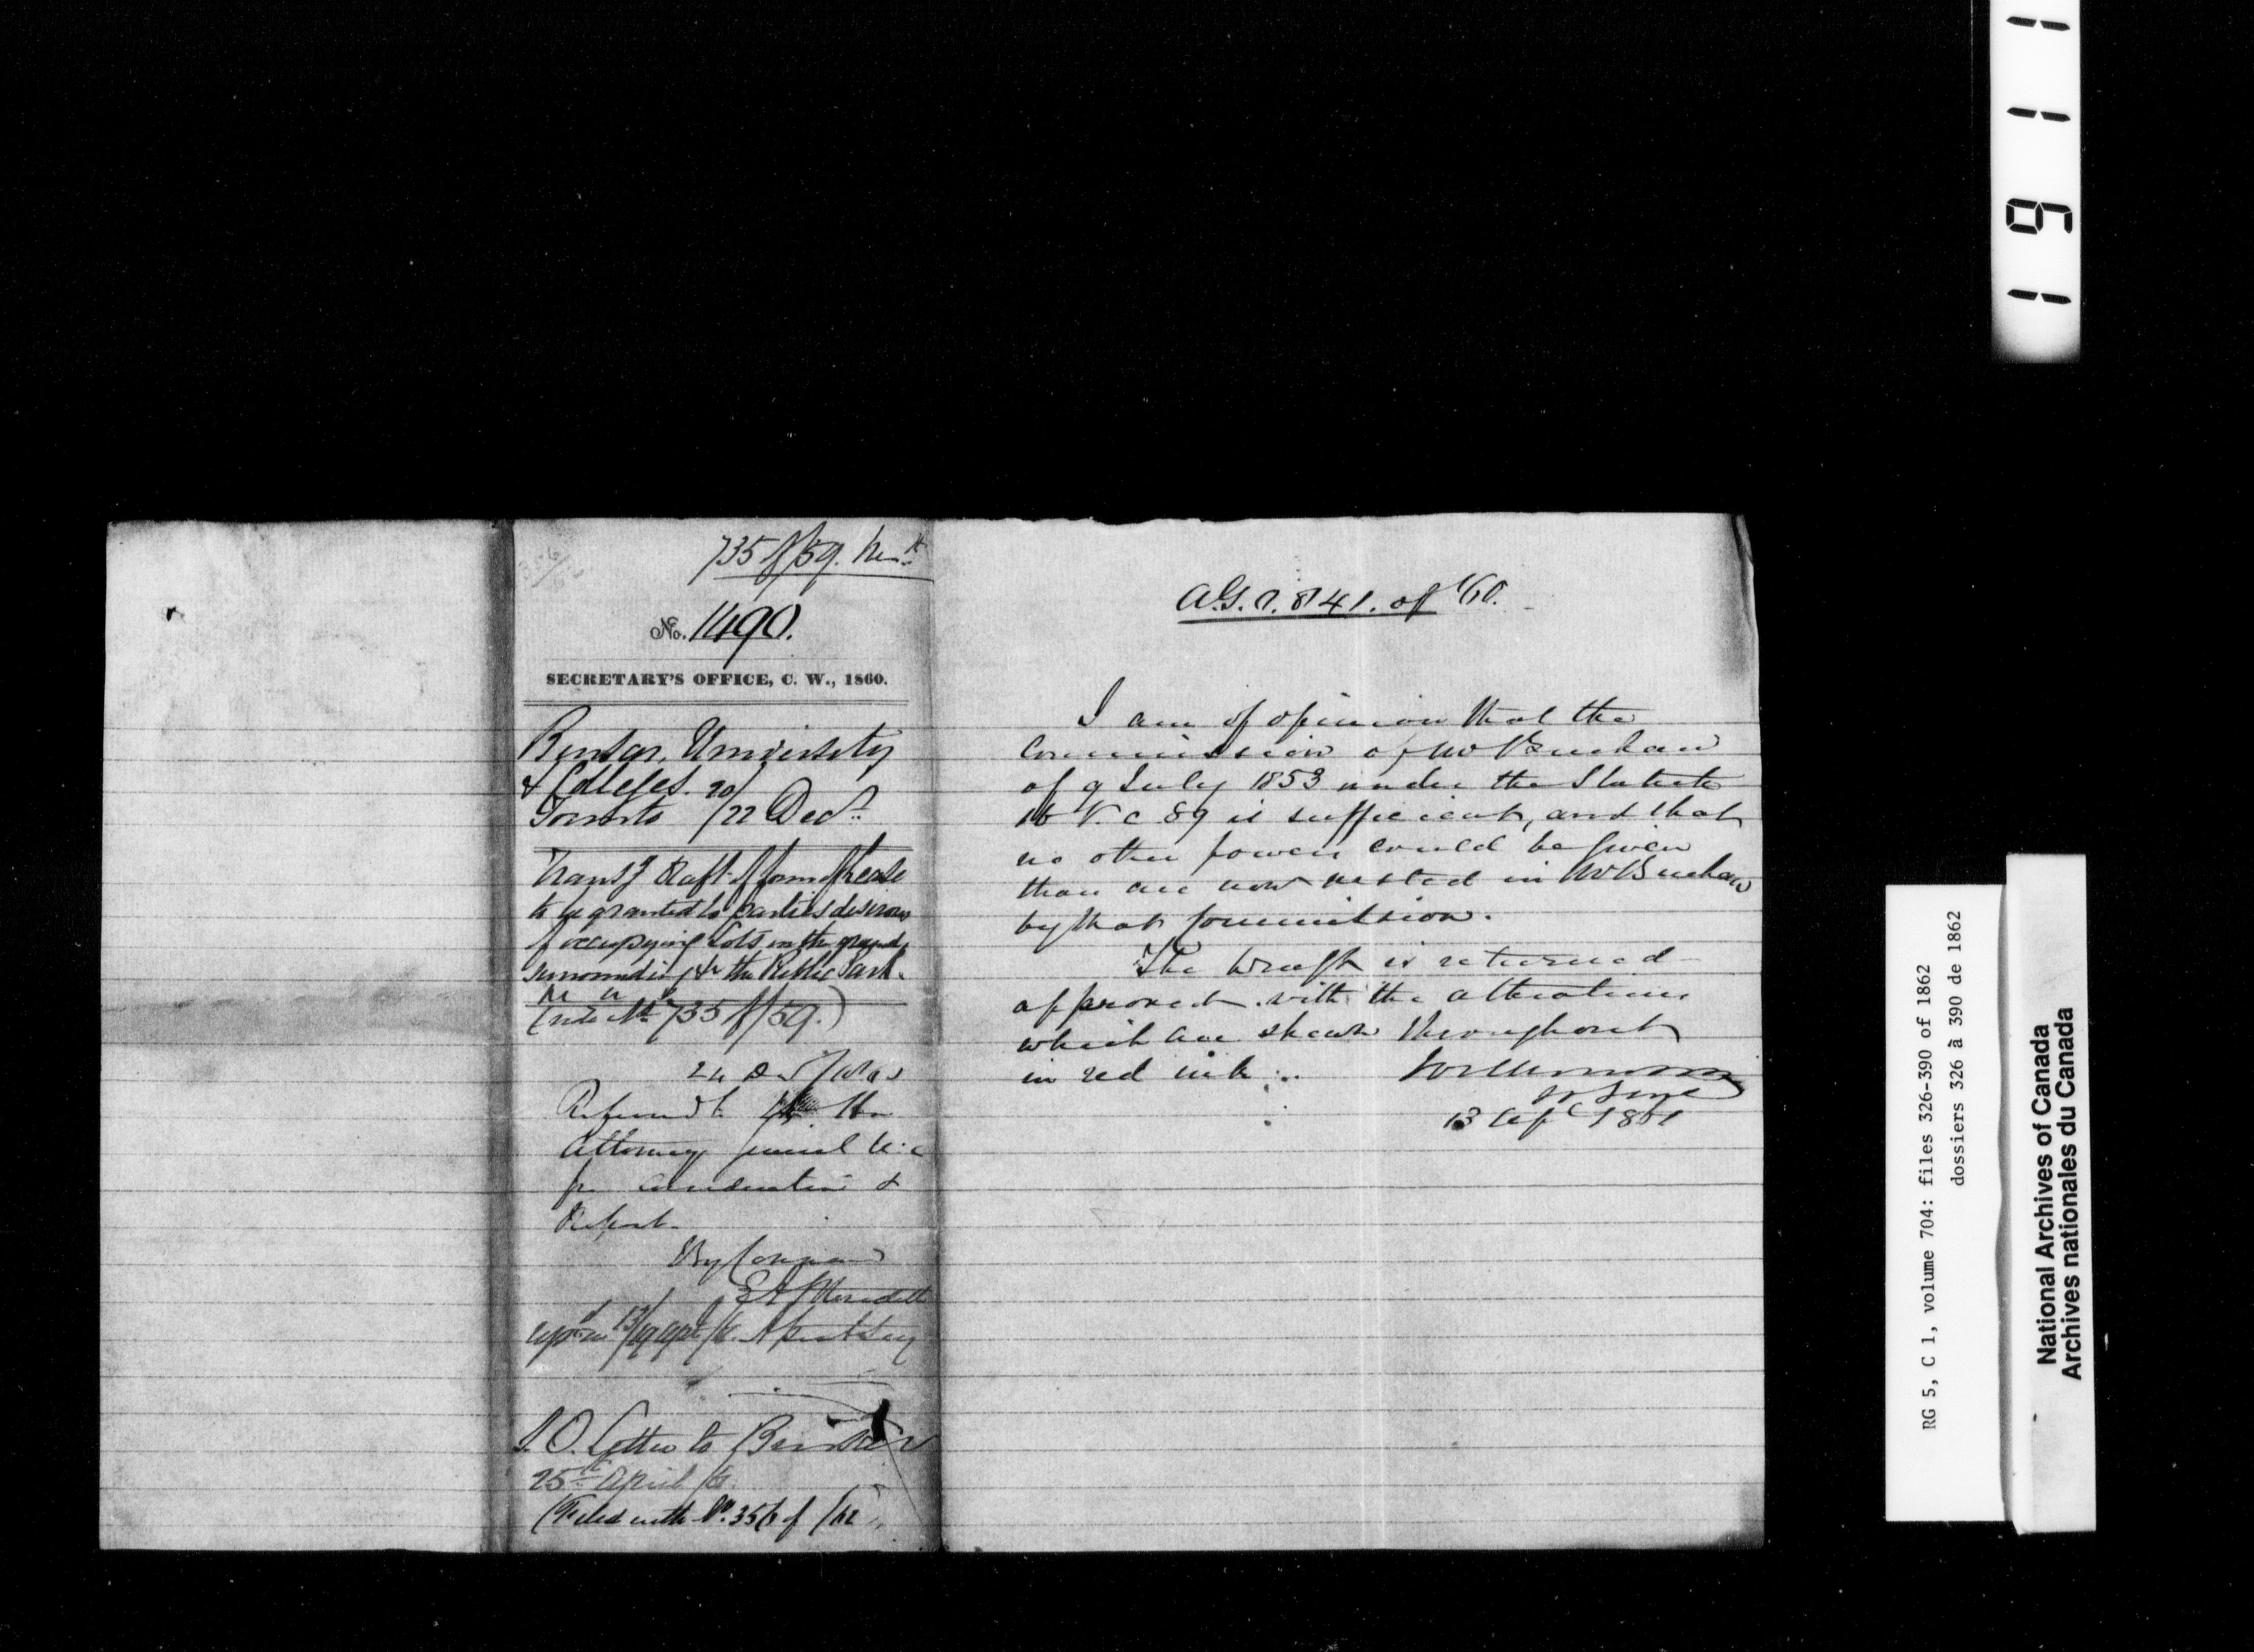 735 of /59.
No. 1490.
SECRETARY'S OFFICE, C. W., 1860.
Bursar, University
& Colleges. 20/
Toronto /22 Decr.
Transg draft of form of Lease
to be granted to parties desirous
of occupying Lots in the grounds
surrounding the Public Park.
(vide No. 735 of /59.)
24
Referred to the Hon
Attorney General U.C
for consideration &
Report.
By Command
E A Meredith
13/19 Apl /61. Asst Secy
S.O. Letter to Bursar
25th April /61.
(Filed with No. 356 of /62)
A.G. 841. of /60.
I am of opinion that the
Commission of Mr Buchan
of 9 July 1853 under the Statute
16 V. c 89 is sufficient, and that
no other powers could be given
than are now vested in Mr Buchan
by that Commission.
The Draft is returned
approved with the alterations
which are shewn throughout
in red ink.
13 Apl 1861
1 1 6 1
RG 5, C 1, volume 704: files 326-390 of 1862
dossiers 326 à 390 de 1862
National Archives of Canada
Archives nationales du Canada